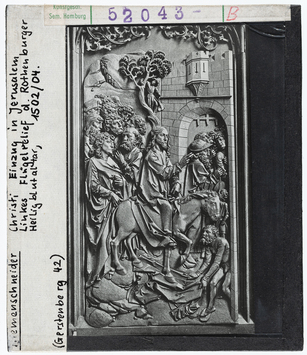 Kunstgesch.
Sem. Hamburg
52043
B
Riemenschneider
Christi Einzug in Jerusalem
Linkes Flügelrelief d. Rothenburger
Heiligblutaltar,
1502/04.
(Gerstenberg 42)